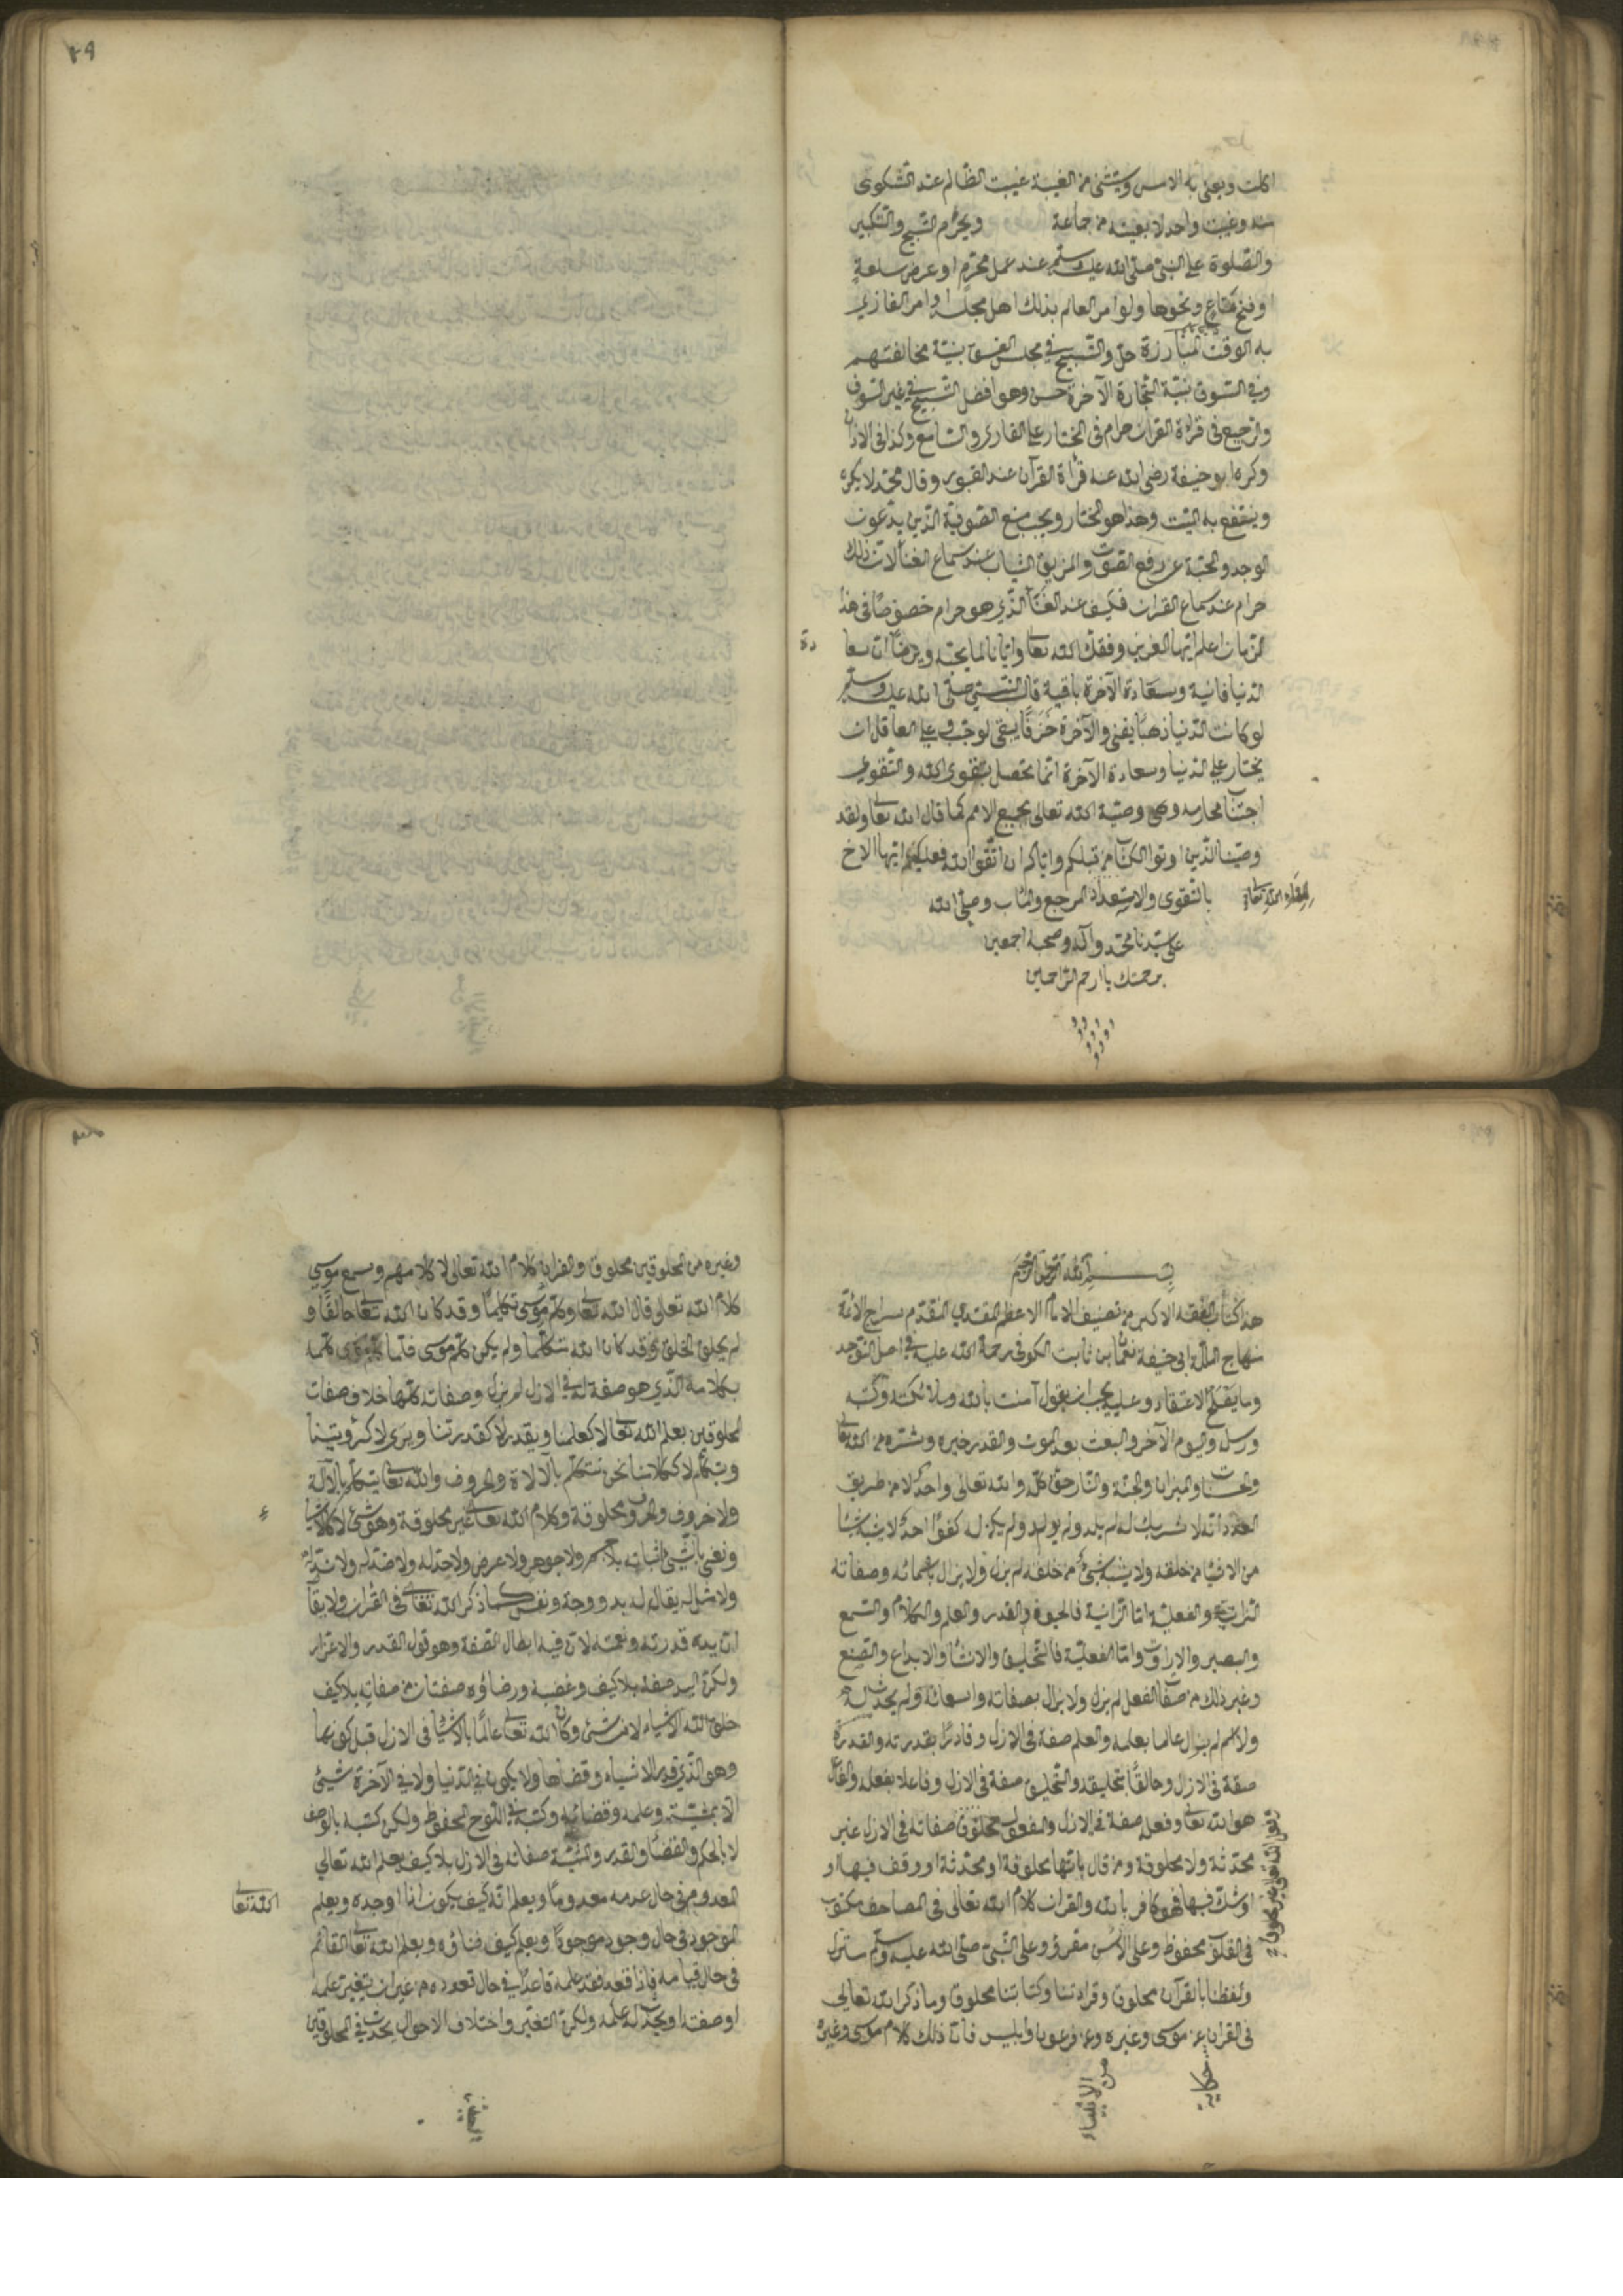 ٢٩
اكلت ويعني به الامس ويستثنى من الغيبة غيبت الظالم عند الشكوى
منه وغيبت واحد لا بعينه من جماعة ويحرم التسبيح والتكبير
والصلوة على النبي صلى الله عليه وسلم عند عمل محرم او عرض سلعة
او فتح متاع ونحوها ولو امر العالم بذلك اهل مجلسه او امر الغازي
به الوقت المبارزة حل والتسبيح في مجلس الفسق بنية مخالفتهم
وفي السوق بنية التجارة الآخرة حسن وهو افضل التسبيح في غير السوق
والترجيع في قراءة القران حرام في المختار على القاري والسامع وكذا في الاذان
وكره ابو حنيفة رضي الله عنه قرأة القرآن عند القبور وقال محمد لا يكره
وينتفع به الميت وهذا هو المختار ويجب منع الصوفية الذين يدعون
الوجد والمحبة عن رفع الصوت والمزيق الثياب عند سماع الغنا لان ذلك
حرام عند سماع القران فكيف عند الغنا الذي هو حرام خصوصا في هذا
الزمان اعلم ايها العزيز وفقك الله تعا وايانا لما يحبه ويرضا ان سعا
دة
الدنيا فانية وسعادة الآخرة باقية قال النبي صلى الله عليه وسلم
لو كانت الدنيا ذهبا يفنى والآخرة خزفا يبقى لوجب على العاقل ان
يختار على الدنيا وسعادة الآخرة انما تحصل بتقوى الله والتقوى
اجتناب محارمه وهي وصية الله تعالى بجميع الامم كما قال الله تعا ولقد
وصينا الذين اوتوا الكتاب من قبلكم واياكم ان اتقوا الله فعليكم ايها الاخ
بالتقوى والاستعداد المرجع والمئاب وصلى الله
على سيدنا محمد وآله وصحبه اجمعين
برحمتك يا ارحم الراحمين
بسم الله الرحمن الرحيم
هذا كتاب الفقه الاكبر من تصنيف الامام الاعظم المقتدي المقدم سراج الائمة
منهاج الملة ابي حنيفة نعمان بن ثابت الكوفي رحمة الله عليه في اصل التوحيد
وما يصح الاعتقاد وعليه يجب ان يقول آمنت بالله وملائكته وكتبه
ورسله واليوم الآخر والبعث بعد الموت والقدر خيره وشره من الله تعا
والحساب والميزان والجنة والنار حق كله والله تعالى واحد لا من طريق
العدد انه لا شريك له لم يلد ولم يولد ولم يكن له كفوا احد لا يشبه شيئا
من الاشياء من خلقه ولا يشبه شيئ من خلقه لم يزل ولا يزال باسمائه وصفاته
الذاتية والفعلية اما الذاتية فالحيوة والقدرة والعلم والكلام والسمع
والبصر والارادة واما الفعلية فالتخليق والانشاء والابداع والصنع
وغير ذلك من صفات الفعل لم يزل ولا يزال بصفاته واسمائه ولم يحدث له
ولا اسم لم يزال عالما بعلمه والعلم صفة في الازل وقادرا بقدرته والقدرة
صفة في الازل وخالقا بتخليقه والتخليق صفة في الازل وفاعلا بفعله والفاعل
هو الله تعا وفعله صفة في الازل والمفعول مخلوق صفاته في الازل غير
محدثة ولا مخلوقة ومن قال بانها مخلوقة او محدثة او وقف فيها او
او شك فيها فهو كافر بالله والقران كلام الله تعالى في المصاحف مكتوب
في القلوب محفوظ وعلى الالسن مقرؤ وعلى النبي صلى الله عليه وسلم منزل
ولفظنا بالقرآن مخلوق وقراءتنا وكتابتنا مخلوق وما ذكر الله تعالى
في القران عن موسى وغيره وعن فرعون وابليس فان ذلك كلام موسى وغيره
حكاية
من الانبياء
وغيره من المخلوقين مخلوق والقران كلام الله تعالى لا كلامهم وسمع موسى
كلام الله تعالى قال الله تعا وكلم موسى تكليما وقد كان الله تعا خالقا و
لم يخلق الخلق وقد كان الله متكلما ولم يكن كلم موسى فلما كلم موسى كلمه
بكلامه الذي هو صفة له في الازل لم يزل وصفاته كلها خلاف صفات
المخلوقين يعلم الله تعا لا كعلمنا ويقدر لا كقدرتنا ويرى لا كرؤيتنا
ويتكلم لا ككلامنا نحن نتكلم بالالات والحروف والله تعا يتكلم بلا آلة
ولا حروف والحروف مخلوقة وكلام الله تعا غير مخلوقة وهو شئ لا كالاشيا
ء
ونعني بالشئ اثباته بلا جسم ولا جوهر ولا عرض ولا حد له ولا ضد له ولا ند له
ولا مثل له يقال له يد ووجه ونفس كما ذكر الله تعالى في القران ولا يقا
ان يده قدرته ونعمته لان فيه ابطال الصفة وهو قول القدر والاعتزار
ولكن اليد صفة بلا كيف وغضبه ورضاؤه صفتان من صفاته بلا كيف
خلق الله الاشياء لا من شئ وكان الله تعا عالما بالاشيا في الازل قبل كونها
وهو الذي قدر الاشياء وقضاها ولا يكون في الدنيا ولا في الآخرة شيئ
الا بمشيته وعلمه وقضائه وكتبه في اللوح المحفوظ ولكن كتبه بالوصف
لا بالحكم والقضا والقدر والمشية صفاته في الازل بلا كيف يعلم الله تعالى
المعدوم في حال عدمه معدوما ويعلم انه كيف يكون اذا اوجده ويعلم
الله تعا
الموجود في حال وجوده موجودا ويعلم كيف فناؤه ويعلم الله تعا القائم
في حال قيامه فاذا قعد فقد علمه قاعدا في حال قعوده من غير ان يتغير علمه
او صفته او يحدث له علم ولكن التغير واختلاف الاحوال يحدث في المخلوقين